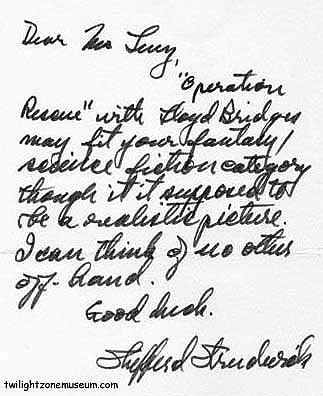 Dear Mr
"Operation
Rescue" with Lloyd Bridges
may fit your fantasy/
science fiction category
though it is supposed to
be a realistic picture.
I can think of no other
off-hand.
Good luck.
Shepperd Strudwick
twilightzonemuseum.com